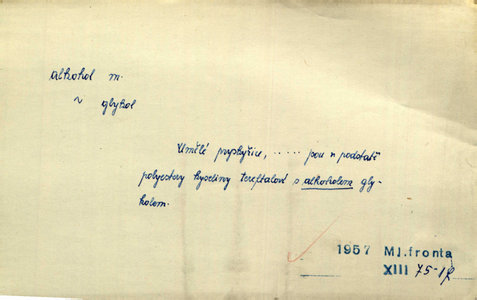 alkohol m.
~ glykol
Umělé pryskyřice, ..... jsou v podstatě
polyestery kyseliny tereftalové s alkoholem gly-
kolem.
1957 Ml.fronta
XIII 75-